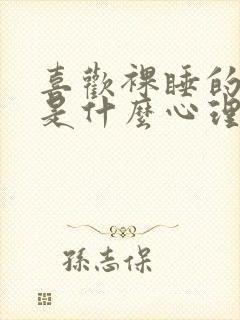 喜歡裸睡的
是什麼心理
孫志保